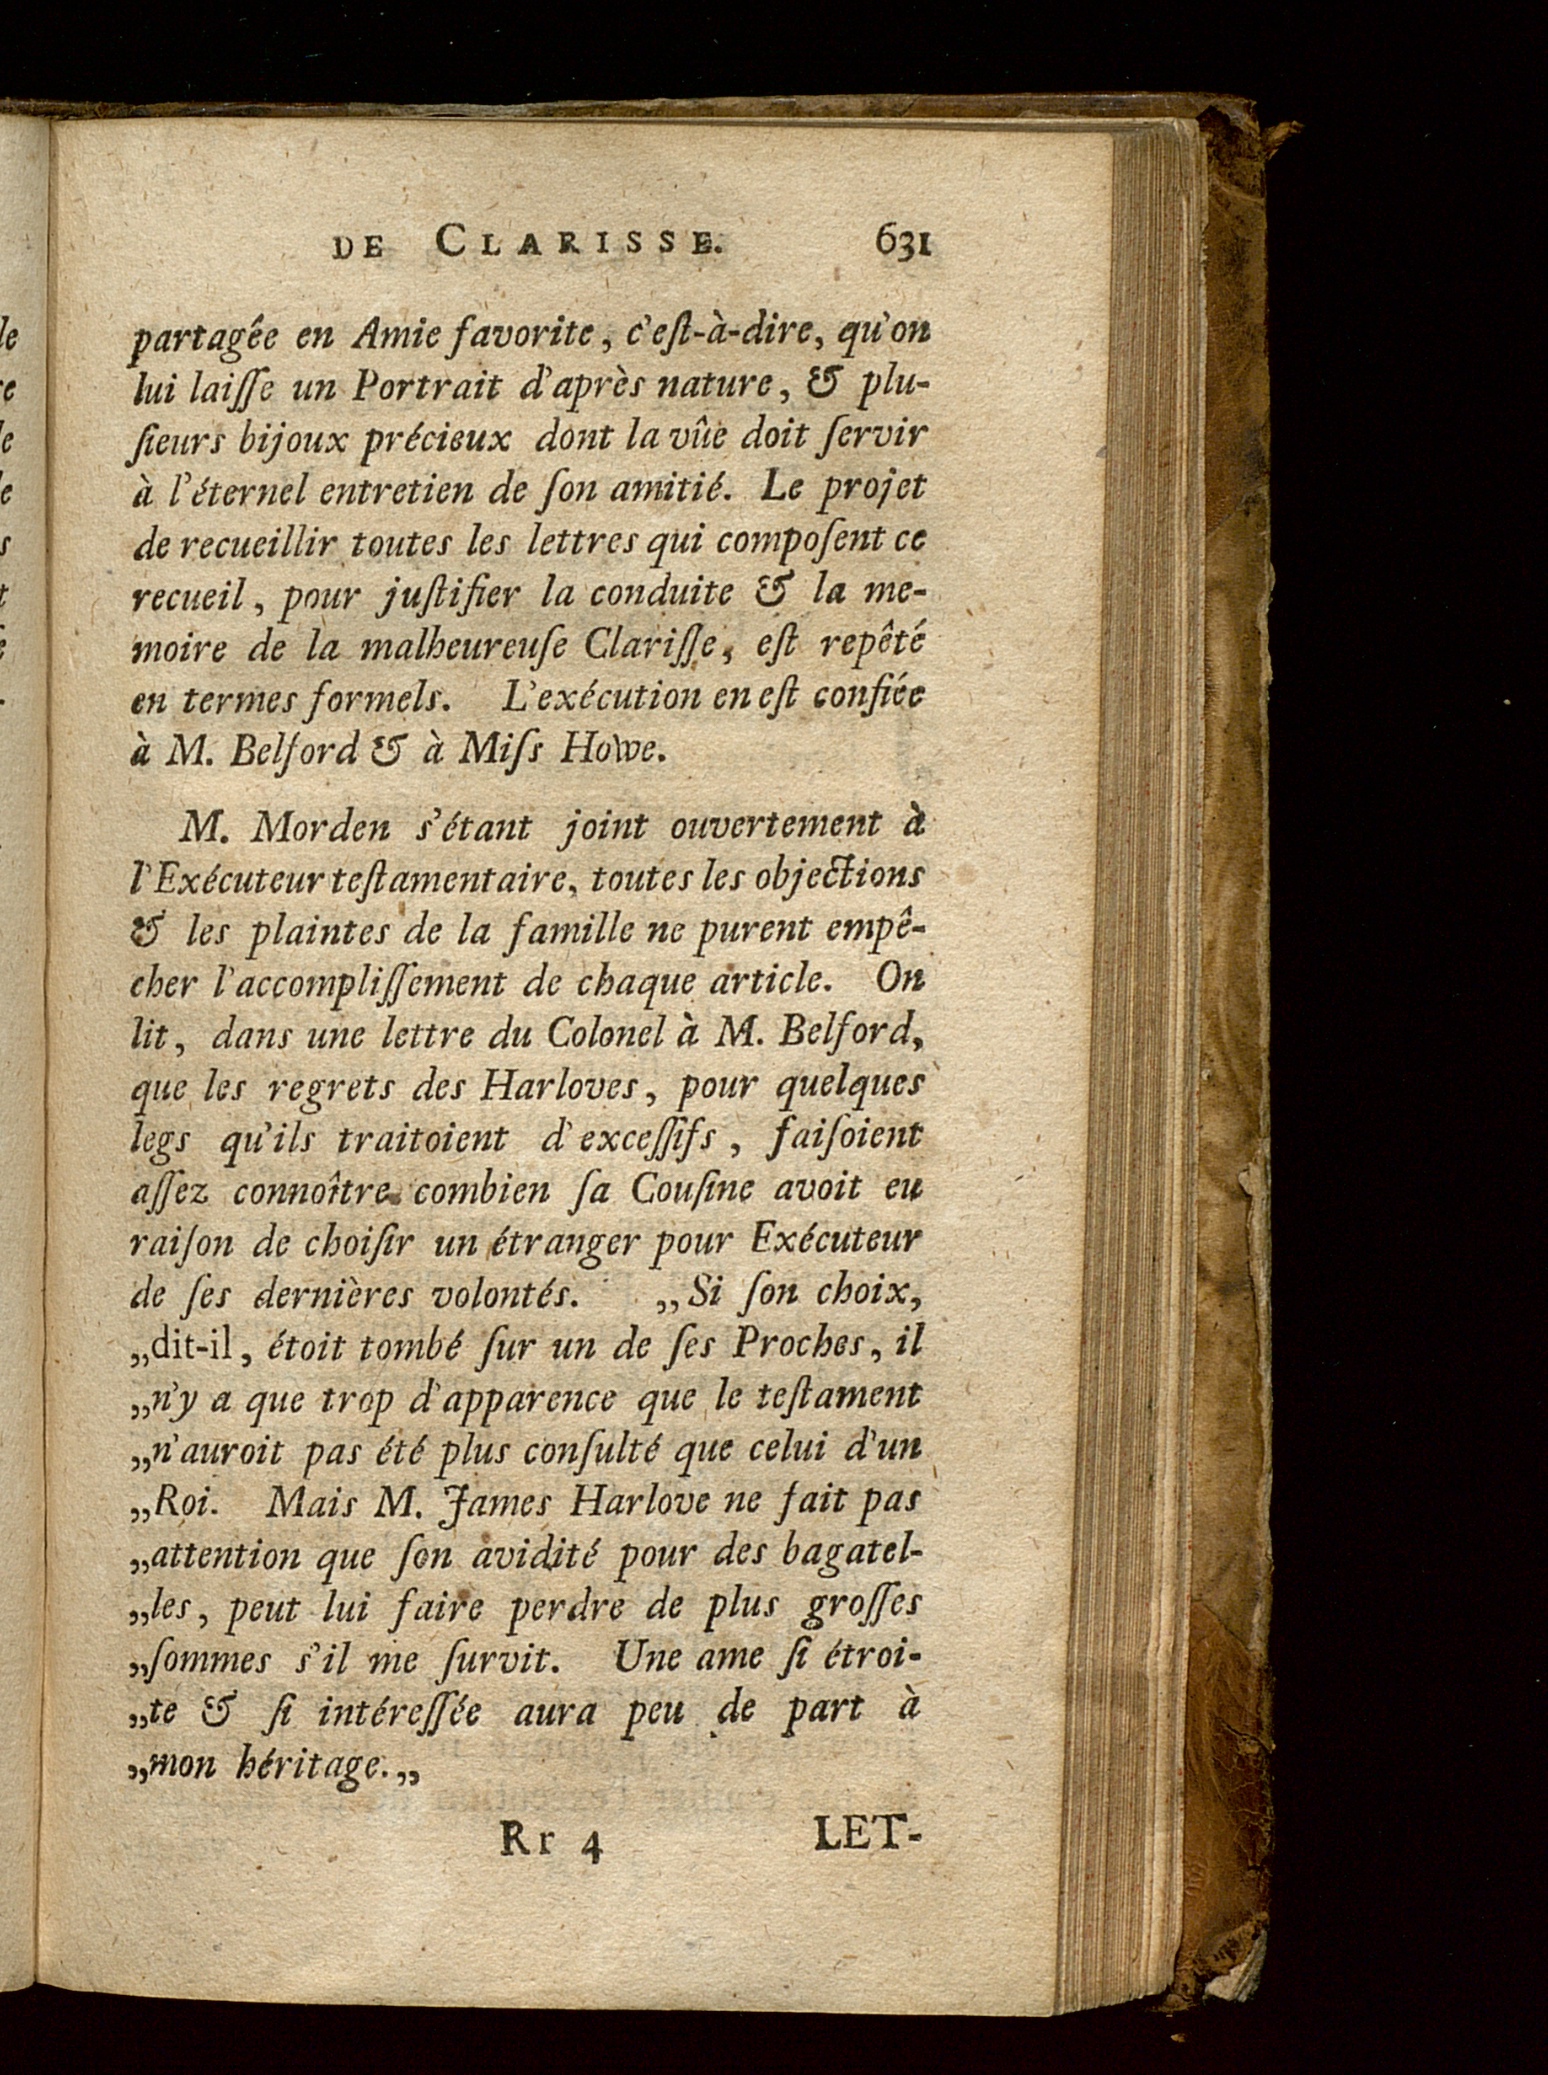 DE CLARISSE. 631
partagée en Amie favorite, c'eſt-à-dire, qu'on
lui laiſſe un Portrait d'après nature, & plu-
ſieurs bijoux précieux dont la vûe doit ſervir
à l'éternel entretien de ſon amitié. Le projet
de recueillir toutes les lettres qui compoſent ce
recueil, pour juſtifier la conduite & la me-
moire de la malheureuſe Clariſſe, eſt repêté
en termes formels. L'exécution en eſt confiée
à M. Belford & à Miſs Howe.
M. Morden s'étant joint ouvertement à
l'Exécuteur teſtamentaire, toutes les objections
& les plaintes de la famille ne purent empê-
cher l'accompliſſement de chaque article. On
lit, dans une lettre du Colonel à M. Belford,
que les regrets des Harloves, pour quelques
legs qu'ils traitoient d'exceſſifs, faiſoient
aſſez connoître combien ſa Couſine avoit eu
raiſon de choiſir un étranger pour Exécuteur
de ſes dernières volontés. „Si ſon choix,
„dit-il, étoit tombé ſur un de ſes Proches, il
„n'y a que trop d'apparence que le teſtament
„n'auroit pas été plus conſulté que celui d'un
„Roi. Mais M. James Harlove ne fait pas
„attention que ſon avidité pour des bagatel-
„les, peut lui faire perdre de plus groſſes
„ſommes s'il me ſurvit. Une ame ſi étroi-
„te & ſi intéreſſée aura peu de part à
„mon héritage.„
Rr 4 LET-